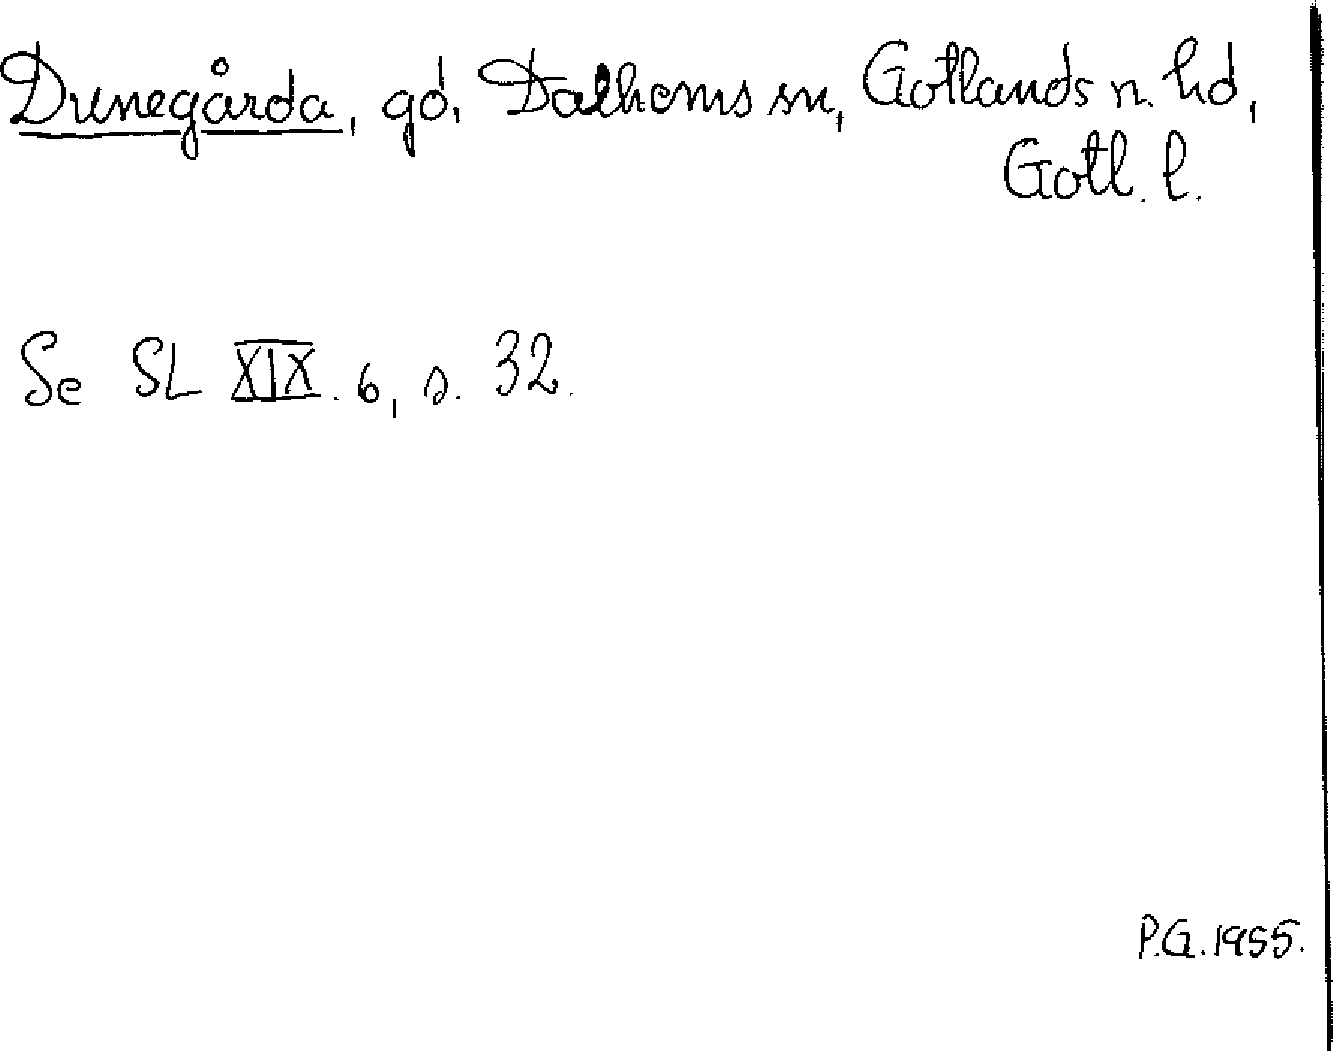 Dunegårda, gd, Dalhems sn, Gotlands n. hd,
Gotl. l.
Se SL XIX. 6, s. 32.
P.G. 1955.